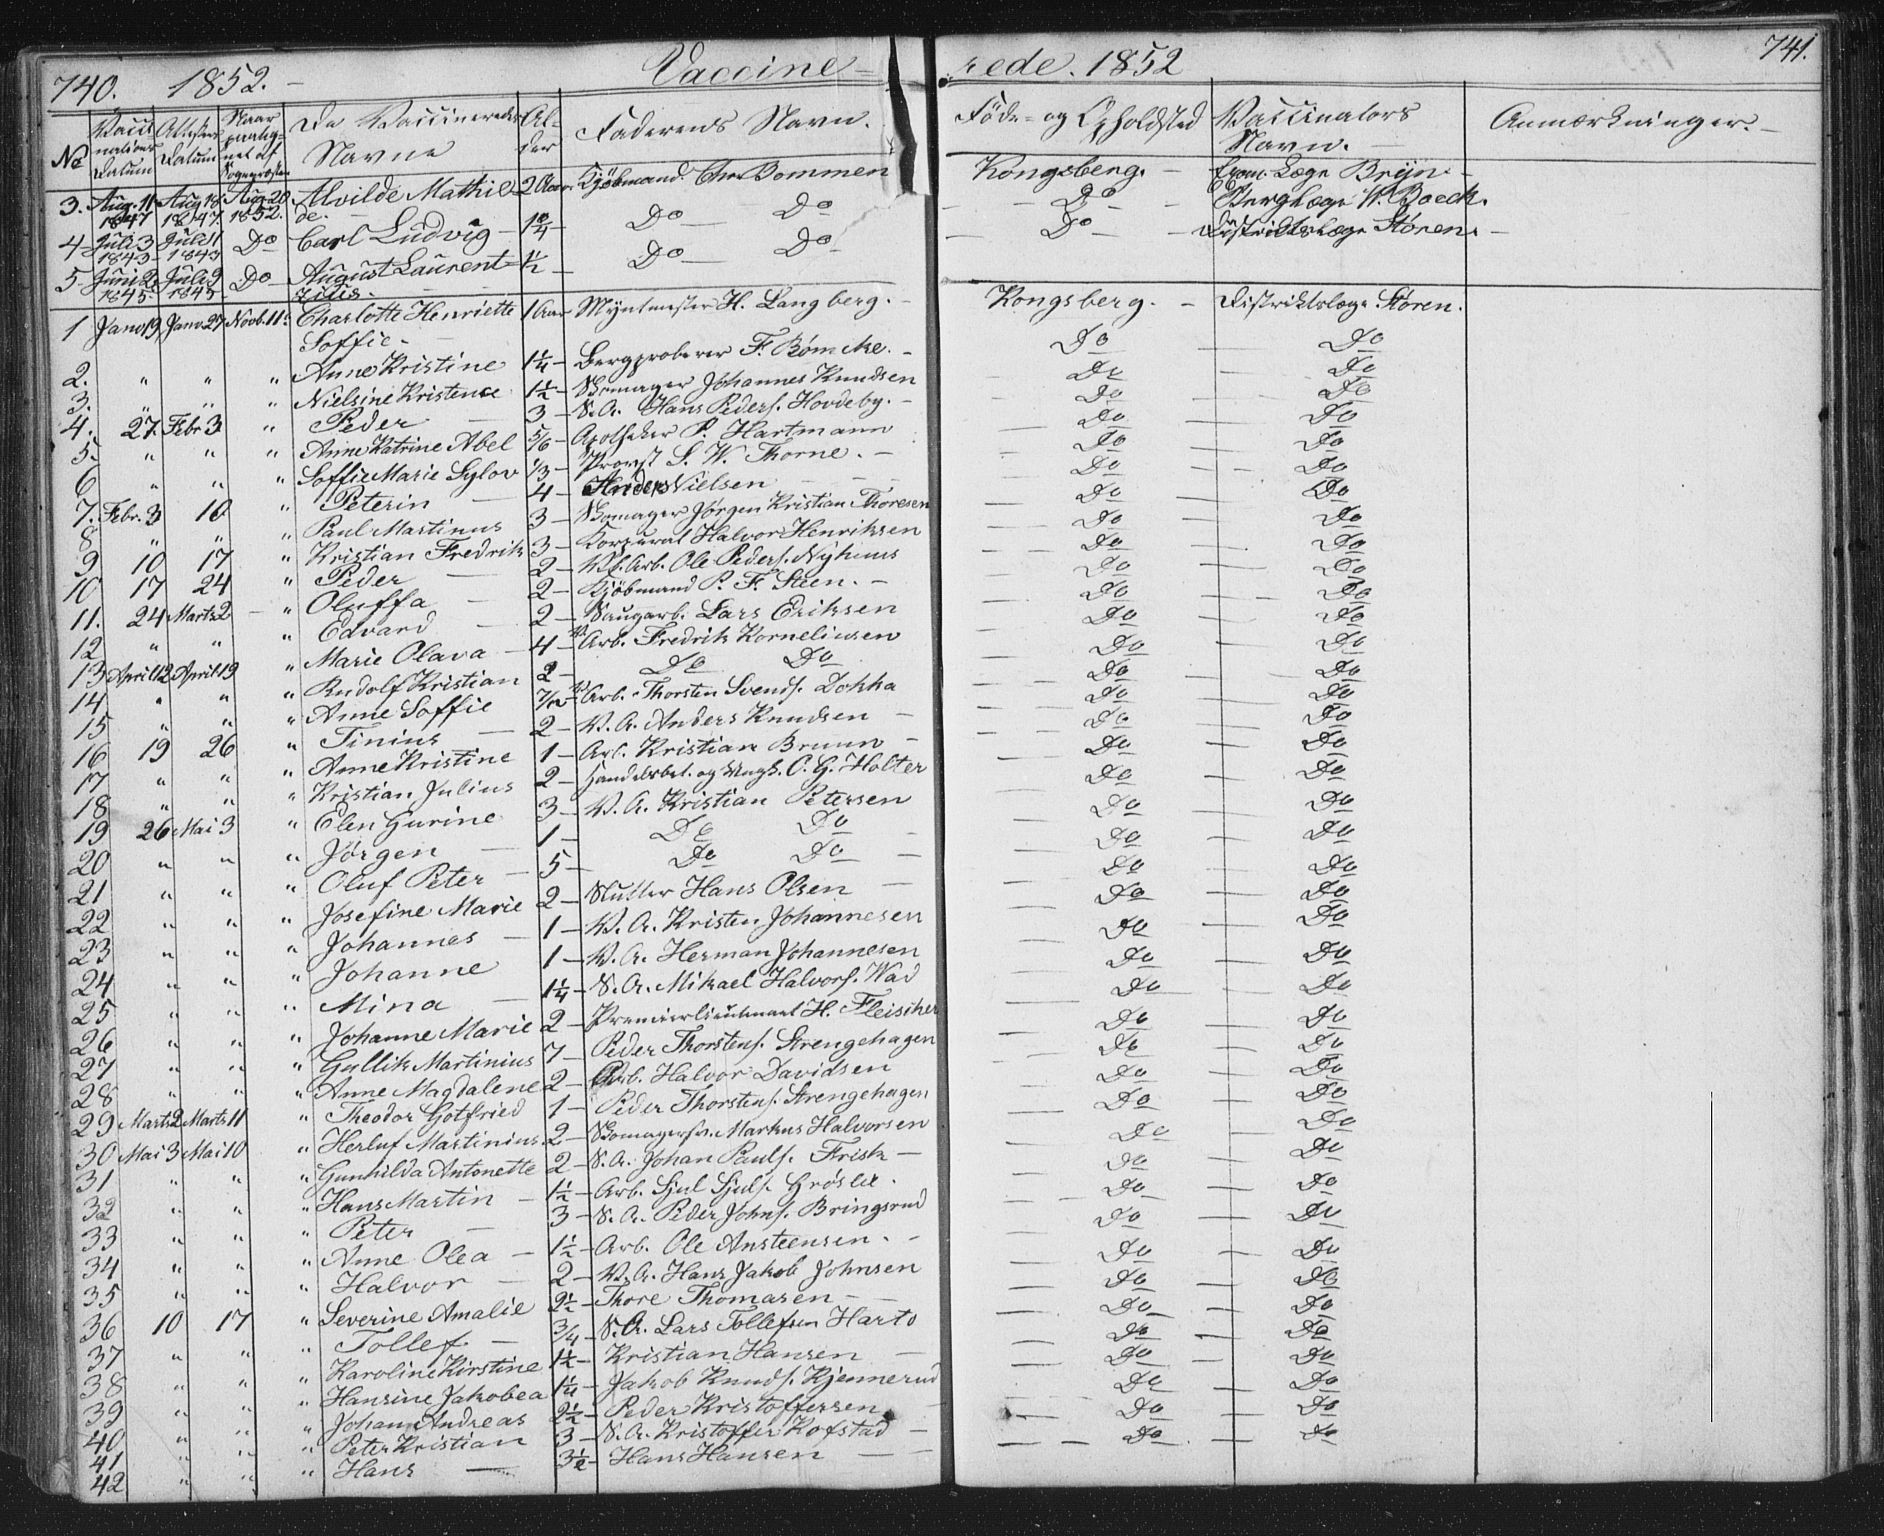 740. 1852. Vaccine- rede. 1852 741.
No Vacci nations Datum Attestens Datum Naar paateg- net af Sognepræsten De Vaccineredes Navne Al- der Faderens Navn. Føde- og Opholdsted Vaccinators Navn. Anmærkninger.
3. Aug. 11 1847 Aug 18 1847 Aug. 20 1852. Alvilde Mathil- de. 2 Aar Kjøbmand Chr Bommen Kongsberg. Exam. Læge Brijn
4 Juli 3 1843 Juli 11 1843 Do Carl Ludvig Do Do Do Berglæge W. Boeck.
5 Juni 2 1845 Juli 9 1845 Do August Laurent- zius. 1½ Do Do Do Distriktslæge Støren
1 Janv 19 Janv. 27 Novb. 11 Charlotte Henriette Soffie 1 Aar Myntmester H. Langberg. Kongsberg. Distriktslæge Støren.
2. " " " Anne Kristine 1¼ Bergproberer F. Bømcke. Do Do
3. " " " Nielsine Kristence 1½ Skomager Johannes Knudsen Do Do
4. 27. Febr. 3 " Peder 3 S. A. Hans Peders. Hovdeby. Do Do
5. " " " Anne Katrine Abel 5/6 Apotheker P. Hartmann Do Do
6 " " " Soffie Marie Sylov 1/3 Provst S. W. Thorne. Do Do
7. Febr. 3 10 " Peterin 4 Anders Nielsen Do Do
8 " " " Paul Martinus 3 Skomager Jørgen Kristian Thoresen Do Do
9 10 17 " Kristian Fredrik 3 Korporal Halvor Henriksen Do Do
10 17 24 " Peder 2 V. Arb. Ole Peders. Nyhuus Do Do
11. 24 Marts 2 " Oluffa 2 Kjøbmand P. F. Steen. Do Do
12 " " " Edvard 2 Saugarb. Lars Eriksen Do Do
13 April 12 April 19 " Marie Olava 4 Arb. Fredrik Korneliusen Do Do
14 " " " Rudolf Kristian 2 Do Do Do Do
15 " " " Anne Soffie 7/12 Arb. Thorsten Svends. Dokka Do Do
16 19 26 " Tinius 2 V. A. Anders Knudsen Do Do
17 " " " Anne Kristine 1 Arb. Kristian Bruun Do Do
18 " " " Kristian Julius 2 Handelsbet. og C. G. Holter Do Do
19 26 Mai 3 " Elen Gurine 3 V. A. Kristian Petersen Do Do
20 " " " Jørgen 1 Do Do Do Do
21 " " " Oluf Peter 5 Do Do Do Do
22 " " " Josefine Marie 2 Slutter Hans Olsen Do Do
23 " " " Johannes 1 V. A. Kristen Johannesen Do Do
24 " " " Johanne 1 V. A. Herman Johannesen Do Do
25 " " " Mina 1¼ S. A. Mikael Halvors. Wad Do Do
26 " " " Johanne Marie 2 Premierlieutenant H. Fleischer Do Do
27 " " " Gullik Martinius 7 Peder Thorstens. Strengehagen Do Do
28 " " " Anne Magdalene 2 Arb. Halvor Davidsen Do Do
29 Marts 2 Marts 11 " Theodor Gotfried 1 Peder Thorstens. Strengehagen Do Do
30 Mai 3 Mai 10 " Herluf Martinius 2 Skomagersv. Markus Halvorsen Do Do
31 " " " Gunhilda Antonette 2 S. A. Johan Pauls. Frisk Do Do
32 " " " Hans Martin 1½ Arb. Sjul Sjuls. Grøslie. Do Do
33 " " " Peter 3 S. A. Peder Johns. Bringsrud Do Do
34 " " " Anne Olea 1½ Arb. Ole Ansteensen. Do Do
35 " " " Halvor 2 V. A. Hans Jakob Johnsen Do Do
36 10 17 " Severine Amalie 2½ Thore Thomasen Do Do
37 " " " Tollef 3/4 S. A. Lars Tollefsen Harto Do Do
38 " " " Karoline Kirstine 1½ Kristian Hansen Do Do
39 " " " Hansine Jakobea 1¼ Jakob Knuds. Kjennerud Do Do
40 " " " Johan Andreas 2½ Peder Kristoffersen Do Do
41 " " " Peter Kristian 3 S. A. Kristoffer Kofstad Do Do
42 " " " Hans 3½ Hans Hansen Do Do